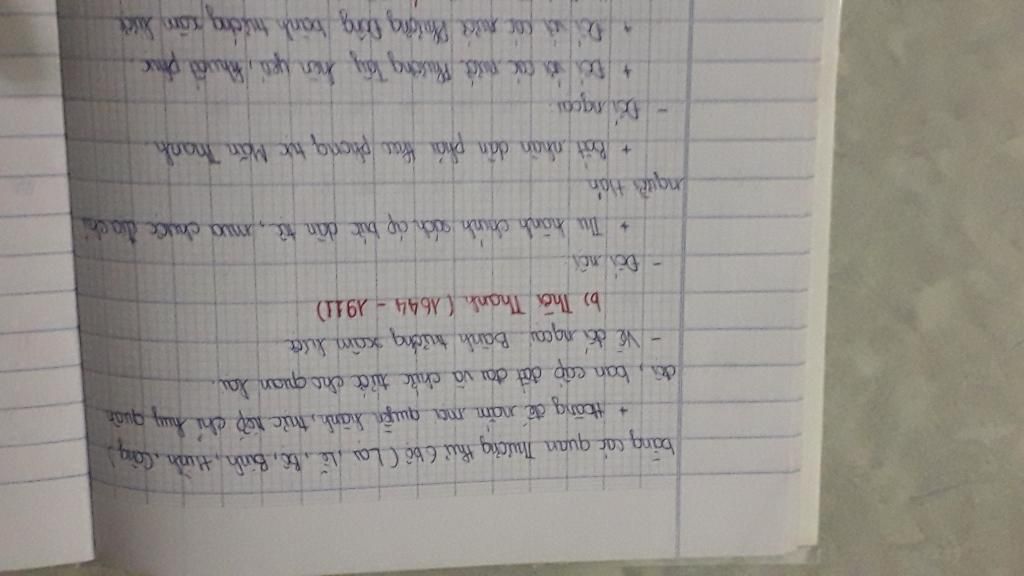 bằng các quan Thượng thư 6 bộ (Lại, Lễ, Bộ, Binh, Hình, Công)
+ Hoàng đế nắm mọi quyền hành, trực tiếp chỉ huy quân
đội, ban cấp đất đai và chức tước cho quan lại.
- Về đối ngoại: Bành trướng xâm lược
b) Thời Thanh (1644 - 1911)
- Đối nội:
+ Thi hành chính sách áp bức dân tộc, mua chuộc địa chủ
người Hán
+ Bắt nhân dân phải theo phong tục Mãn Thanh.
- Đối ngoại:
+ Đối với các nước Phương Tây hèn yếu, khuất phục.
+ Đối với các nước Phương Đông bành trướng xâm lược